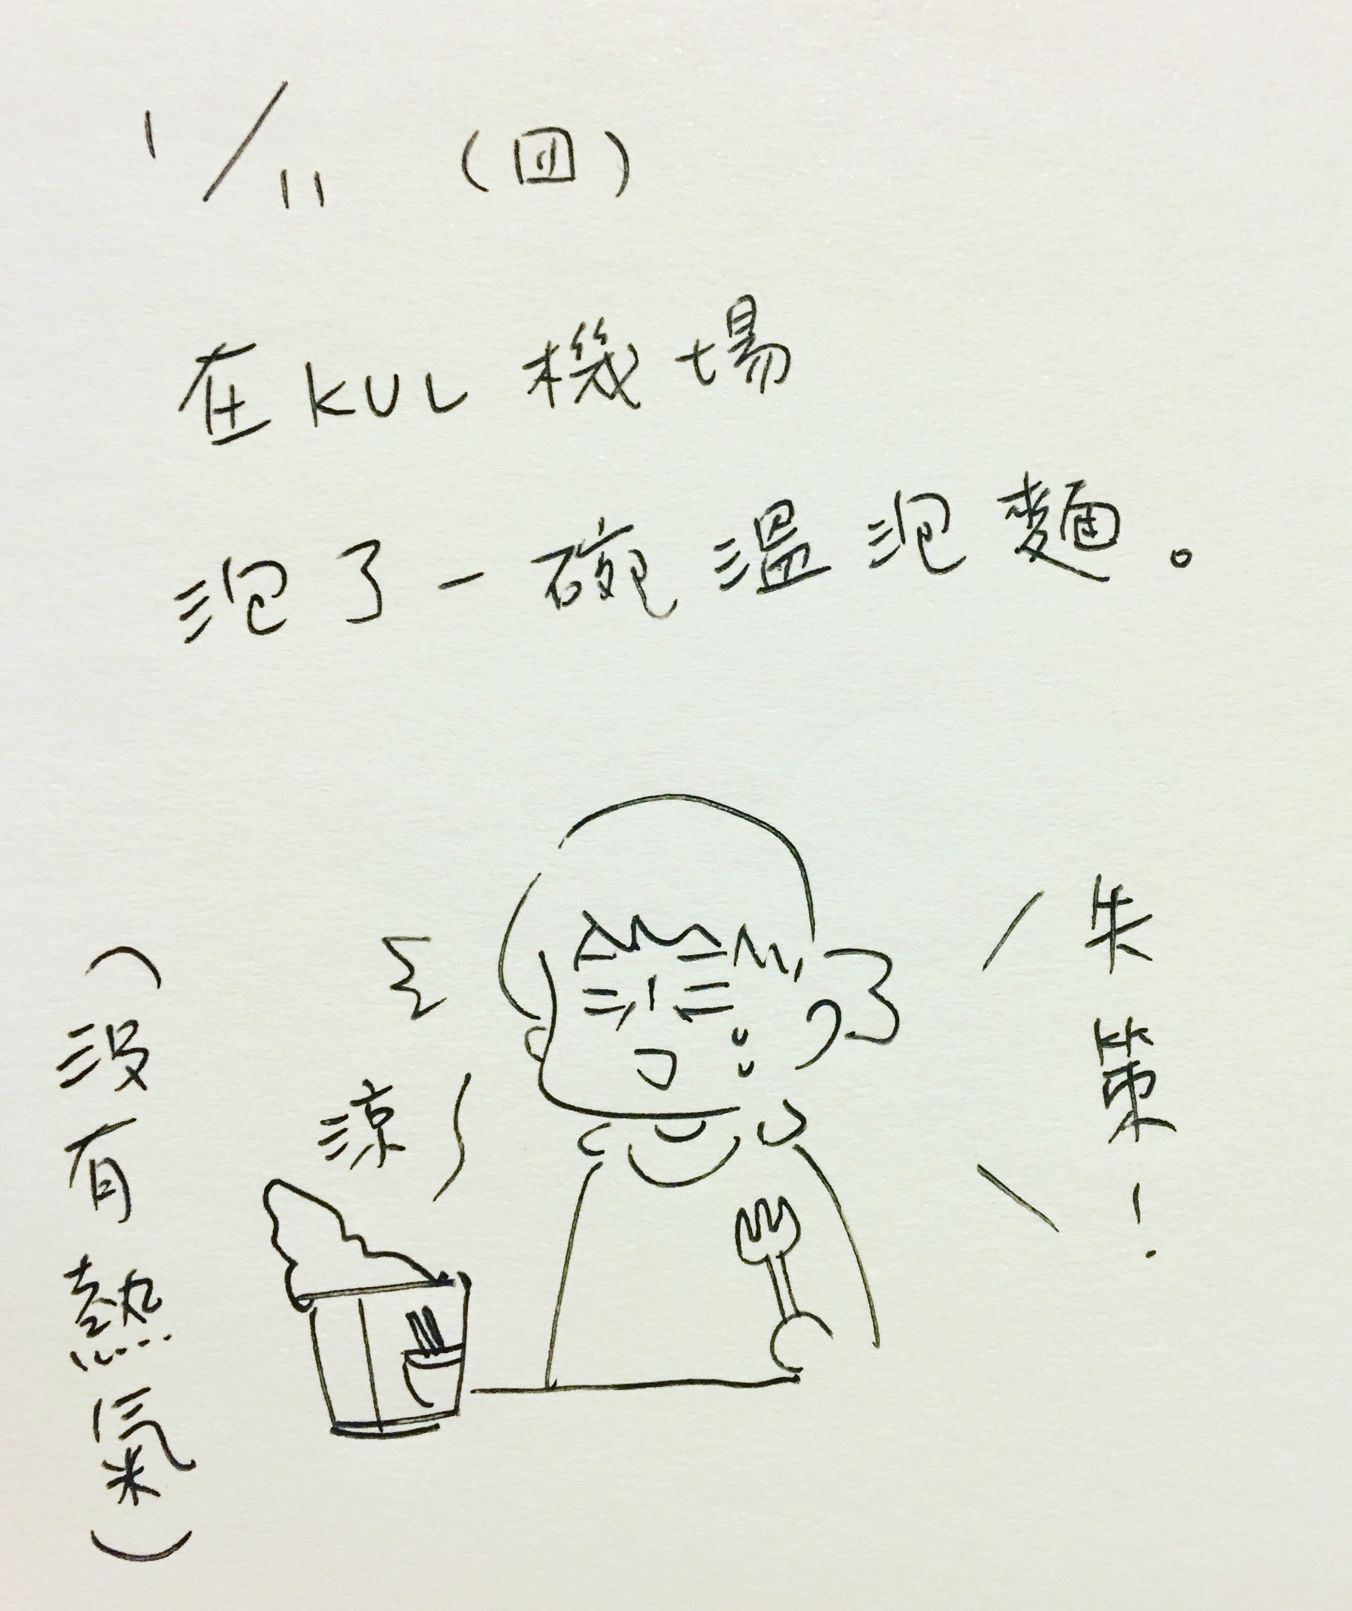 1/11 (四)
在KUL機場
泡了一碗溫泡麵。
失策!
涼
(沒有熱氣)